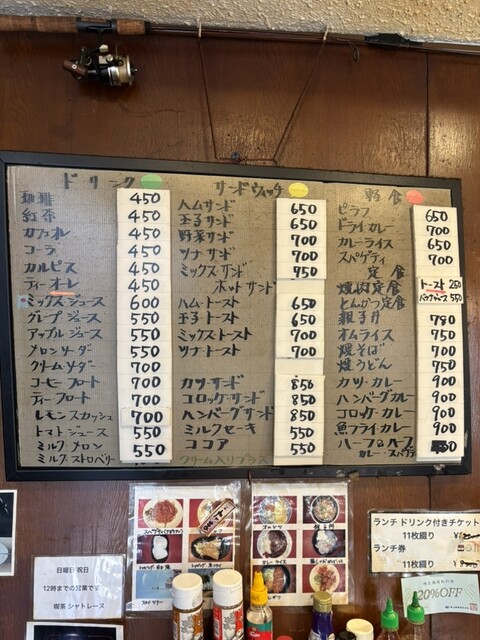 ドリンク
珈琲 450
紅茶 450
カフェオレ 450
コーラ 450
カルピス 450
ティーオーレ 450
ミックスジュース 600
グレープジュース 550
アップルジュース 550
メロンソーダー 550
クリームソーダ 700
コーヒーフロート 700
ティーフロート 700
レモンスカッシュ 700
トマトジュース 550
ミルク・メロン 550
ミルク・ストロベリー
サンドウィッチ
ハムサンド 650
玉子サンド 650
野菜サンド 700
ツナサンド 700
ミックスサンド 750
ホットサンド
ハム・トースト 650
玉子・トースト 650
ミックス・トースト 700
ツナ・トースト 700
カツ・サンド 850
コロッケ・サンド 850
ハンバーグサンド 850
ミルクセーキ 550
ココア 550
クリーム入りプラス
軽食
ピラフ 650
ドライカレー 700
カレーライス 650
スパゲティ 700
定食
焼肉定食
とんかつ定食
トースト 250
親子丼 780
オムライス 750
焼そば 700
焼うどん 750
カツ・カレー 900
ハンバグカレー 900
コロッケ・カレー 900
魚フライカレー 900
ハーフ&ハーフ
カレー・スパゲラ
日曜日祝日
12時までの営業です
喫茶 シャトレーヌ
ランチ ドリンク付きチケット
11枚綴り
ランチ券
11枚綴り
20%OFF